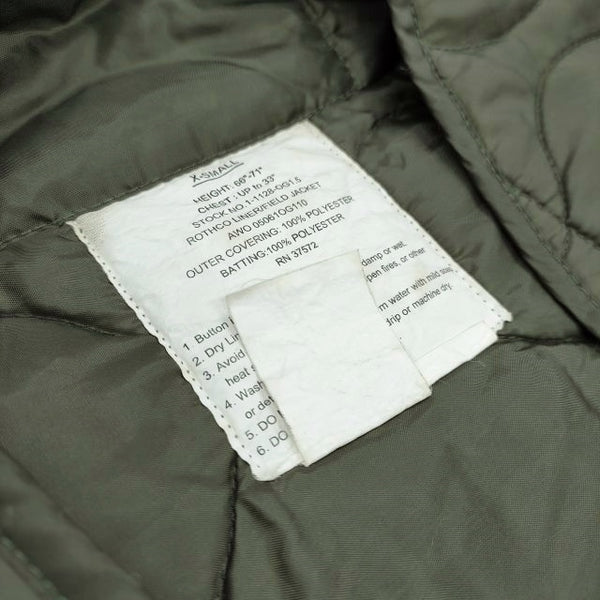 X-SMALL
HEIGHT: 66"-71"
CHEST : UP to 33"
STOCK NO.1-1128-OG1.5
ROTHCO LINER/FIELD JACKET
AWO 05061OG110
OUTER COVERING: 100% POLYESTER
BATTING:100% POLYESTER
RN 37572
1 Button
damp or wet.
2. Dry
open fires, or other
3. Avoid
heat
4. Wash
water with mild soap
or
drip or machine dry.
5. DO
6. DO